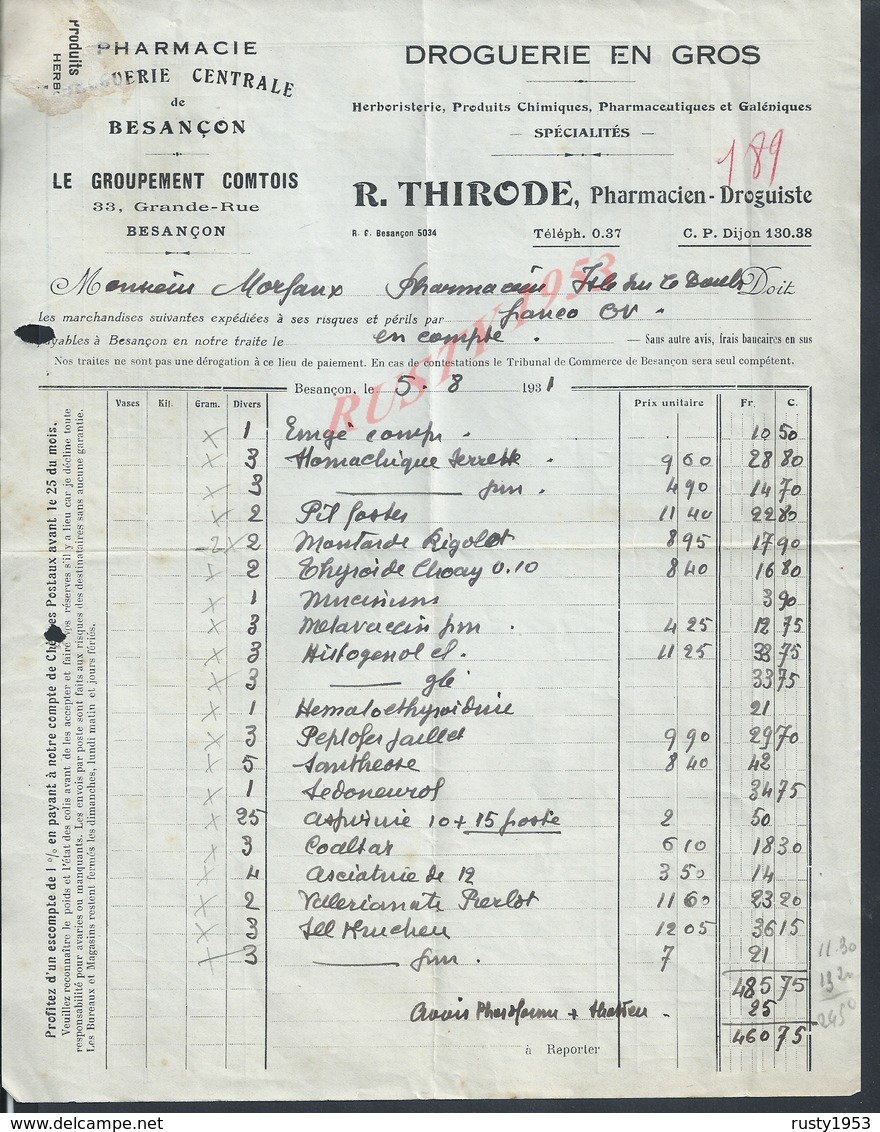 Produits
HERBO
PHARMACIE
UERIE CENTRALE
de
BESANÇON
LE GROUPEMENT COMTOIS
33, Grande-Rue
BESANÇON
DROGUERIE EN GROS
Herboristerie, Produits Chimiques, Pharmaceutiques et Galéniques
— SPÉCIALITÉS —
189
R. THIRODE, Pharmacien-Droguiste
R. C. Besançon 5034 Téléph. 0.37 C. P. Dijon 130.38
Monsieur Morfaux Pharmacien Isle sur le Doubs Doit
les marchandises suivantes expédiées à ses risques et périls par franco GV
payables à Besançon en notre traite le en compte. — Sans autre avis, frais bancaires en sus
Nos traites ne sont pas une dérogation à ce lieu de paiement. En cas de contestations le Tribunal de Commerce de Besançon sera seul compétent.
Besançon, le 5. 8 1931
RUSTY1953
Vases Kil. Gram. Divers Prix unitaire Fr. C.
1 Emgé compr. 10 50
3 Stomachique 9 60 28 80
3 —— pm. 4 90 14 70
2 Pil fostes 11 40 22 80
2 2 Moutarde Rigolot 8 95 17 90
2 Thyroide Choay 0.10 8 40 16 80
1 3 90
3 Metavaccin pm. 4 25 12 75
3 Histogenol el. 11 25 33 75
3 —— glé 33 75
1 Hematoethyroidine 21
3 Peptofer Jaillet 9 90 29 70
5 Santheose 8 40 42
1 Sedoneurol 34 75
25 Aspirine 10 + 15 poste 2 50
3 Coaltar 6 10 18 30
4 Asciatine de 12 3 50 14
2 Valerianate Pierlot 11 60 23 20
3 Sel Hunchen 12 05 36 15
3 —— pm. 7 21
485 75
Avoir + 25
460 75
à Reporter
11.30
13 20
24 50
Profitez d'un escompte de 1 % en payant à notre compte de Chèques Postaux avant le 25 du mois.
Veuillez reconnaître le poids et l'état des colis avant de les accepter et faire vos réserves s'il y a lieu car je décline toute
responsabilité pour avaries ou manquants. Les envois par poste sont faits aux risques des destinataires sans aucune garantie.
Les Bureaux et Magasins restent fermés les dimanches, lundi matin et jours fériés.
www.delcampe.net
rusty1953